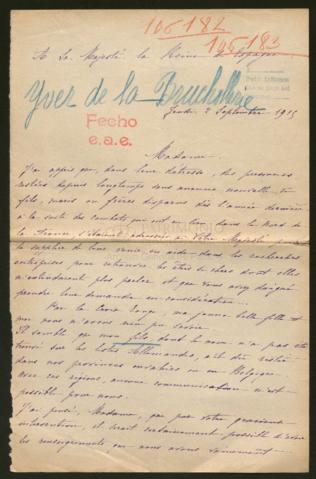 106182
106183
A Sa Majesté la Reine d'Espagne
Yves de la Bruchollerie
Jeudi 2 Septembre 1915
Fecho
e.a.e.
Madame
J'ai appris que, dans leur détresse, des personnes
restées depuis longtemps sans aucune nouvelle, de
fils, maris ou frères disparus dès l'année dernière
à la suite des combats qui ont eu lieu dans le Nord de
la France, s'étaient adressées à Votre Majesté pour
la supplier de leur venir en aide, dans les recherches
entreprises pour retrouver les êtres si chers dont elles
n'entendaient plus parler et que vous avez daigné
prendre leur demande en considération
Par la Croix rouge, ma jeune belle fille et
moi nous n'avons rien pu savoir.
Il semble que mon fils, dont le nom n'a pas été
trouvé sur les listes Allemandes, ait dû rester
dans nos provinces envahies ou en Belgique.
Avec ces régions, aucune communication n'est
possible pour nous.
J'ai pensé, Madame, que par votre gracieuse
intervention, il serait certainement possible d'avoir
les renseignements que nous avons vainement